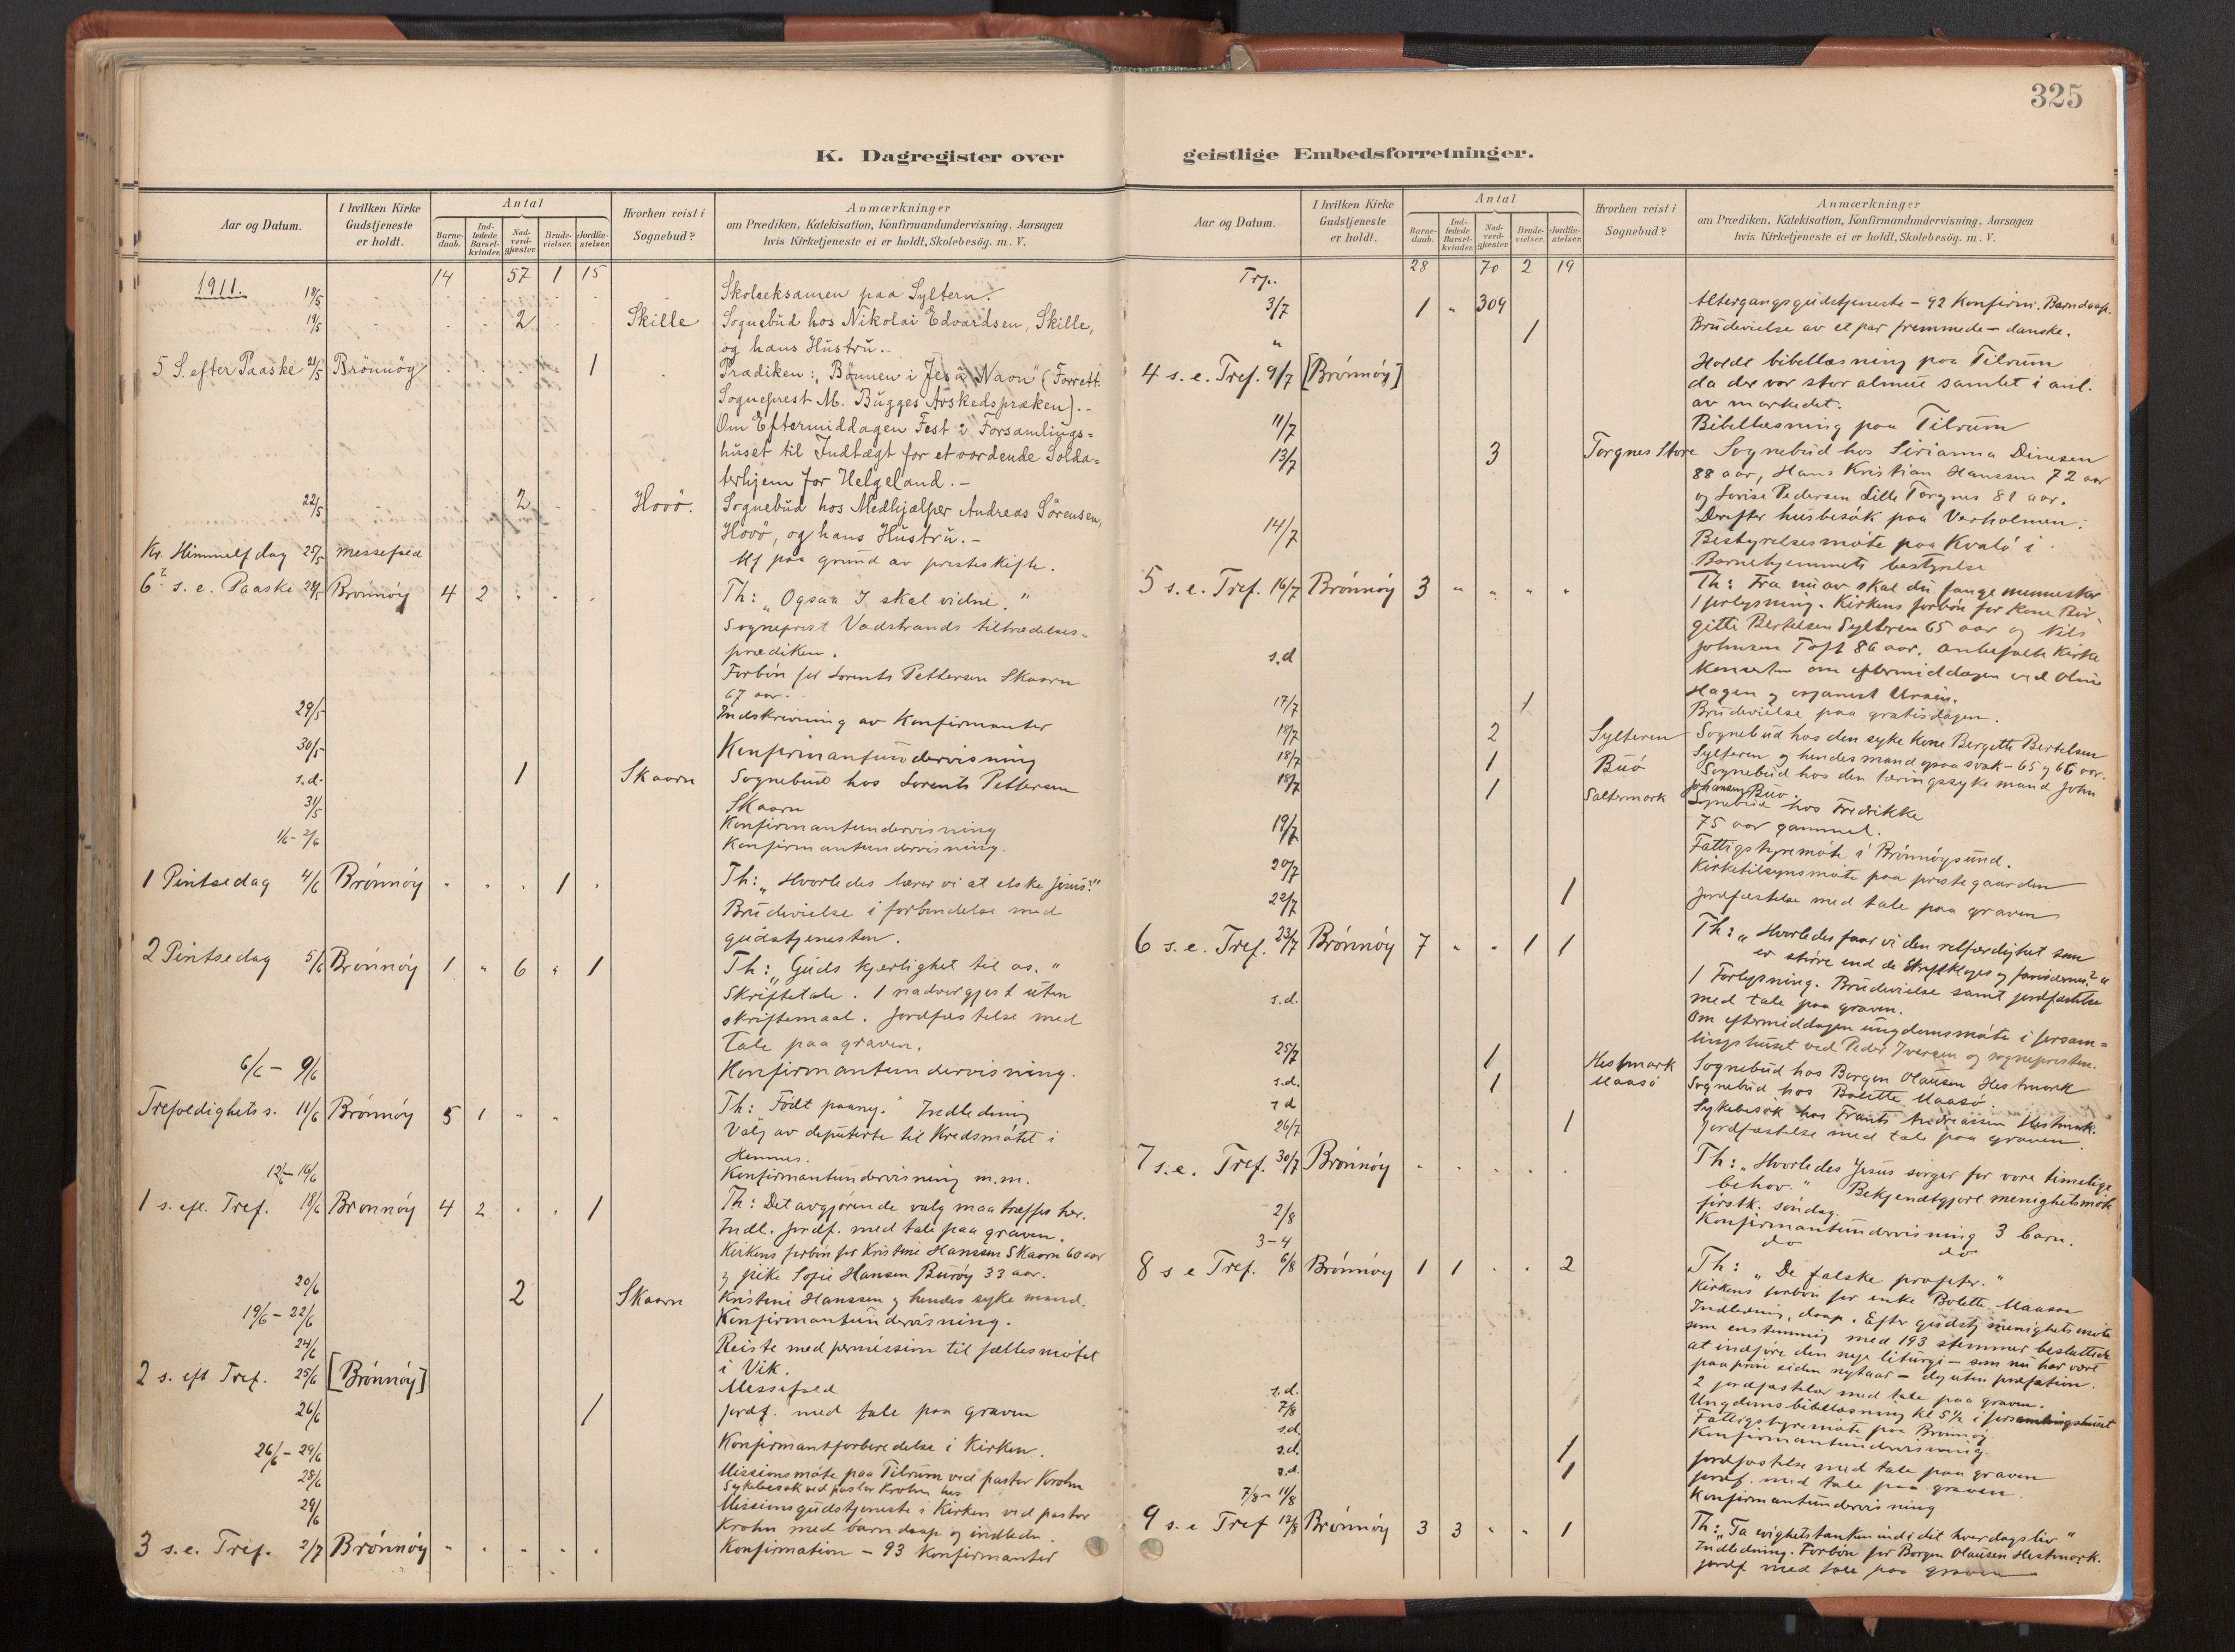 325
K. Dagregister over
geistlige Embedsforretninger.
Aar og Datum.
I hvilken Kirke Gudstjeneste er holdt.
Antal
Barne-daab.
Ind-ledede Barsel-kvinder.
Nad-verd-gjæster.
Brude-vielser.
Jordfæ-stelser.
Hvorhen reist i Sognebud?
Anmærkninger
om Prædiken, Katekisation, Konfirmandundervisning, Aarsagen
hvis Kirketjeneste ei er holdt, Skolebesög. m. V.
14 57 1 15
1911. 18/5 Skoleeksamen paa Syltern.
19/5 2 Skille Sognebud hos Nikolai Edvardsen, Skille,
og hans Hustru.
5 S. efter Paaske 21/5 Brönnöy 1 Prædiken: "Bönnen i Jesu Navn" (Forrett.
Sogneprest M. Bugges Avskedspræken).-
Om Eftermiddagen Fest i Forsamlings=
huset til Indtægt for et vordende Solda=
terhjem for Helgeland.-
22/5 2 Hovö. Sognebud hos Medhjælper Andreas Sörensen,
Hovö, og hans Hustru.-
Kr. Himmelf dag 25/5 messefald Mf paa grund av presteskifte.
6te s. e. Paaske 28/5 Brönnöy 4 2 Th: "Ogsaa I skal vidne."
Sogneprest Vadstrands tiltrædelses-
prædiken.
Forbön for Lorents Pettersen Skaarn
67 aar.
29/5 Indskrivning av Konfirmanter
30/5 Konfirmantundervisning
s.d. 1 Skaarn Sognebud hos Lorents Pettersen
Skaarn
31/5 Konfirmantundervisning
1/6-2/6 Konfirmantundervisning.
1 Pintsedag 4/6 Brönnöy 1 Th: "Hvorledes lærer vi at elske Jesus?"
Brudevielse i forbindelse med
gudstjenesten.
2 Pintsedag 5/6 Brönnöy 1 " 6 " 1 Th: "Guds kjerlighet til os."
Skriftetale. 1 nadvergjest uten
skriftemaal. Jordfæstelse med
Tale paa graven.
6/6 - 9/6 Konfirmantundervisning.
Trefoldighets s. 11/6 Brönnöy 5 1 " " Th: Födt paany." Indledning
Valg av deputerte til Kredsmötet i
Hemnes.
12/6-16/6 Konfirmantundervisning m.m.
1 s. eft. Tref. 18/6 Brönnöy 4 2 1 Th: Det avgjörende valg maa træffes her.
Indl. Jordf. med tale paa graven.
Kirkens forbön for Kristine Hanssen Skaarn 60 aar
og pike Sofie Hansen Buröy 33 aar.
20/6 2 Skaarn Kristine Hanssen og hendes syke mand.
19/6-22/6 Konfirmantundervisning.
24/6 Reiste med permission til fællesmötet
i Vik.
2 s. eft Tref. 25/6 [Brönnöy] Messefald
26/6 1 Jordf. med tale paa graven
26/6-29/6 Konfirmantforberedelse i Kirken.
28/6 Missionsmöte paa Tilrum ved pastor Krohn
Sykebesök ved pastor Krohn hos
29/6 Missionsgudstjeneste i Kirken ved pastor
Krohn med barndaap og indledn.
3 s.e. Tref. 2/7 Brönnöy Konfirmation - 93 Konfirmanter
Aar og Datum.
I hvilken Kirke Gudstjeneste er holdt.
Antal
Barne-daab.
Ind-ledede Barsel-kvinder.
Nad-verd-gjæster.
Brude-vielser.
Jordfæ-stelser.
Hvorhen reist i Sognebud?
Anmærkninger
om Prædiken, Katekisation, Konfirmandundervisning, Aarsagen
hvis Kirketjeneste ei er holdt, Skolebesög. m. V.
Trp. 28 70 2 19
3/7 1 " 304 Altergangsgudstjeneste - 92 Konfirm. Barndaap.
" 1 Brudevielse av et par fremmede - danske.
4 s. e. Tref. 9/7 [Brönnöy] Holdt bibellæsning paa Tilrum
da der var stor almue samlet i anl.
av markedet.
11/7 Bibellæsning paa Tilrum
13/7 3 Torgnes Store Sognebud hos Sirianna Dinesen
88 aar, Hans Kristian Hanssen 72 aar
og Lovise Pedersen Lille Torgnes 81 aar.
Derefter husbesök paa Verholmen.
14/7 Bestyrelsesmöte paa Kvalö i
Barnehjemmets bestyrelse
5 s. e. Tref. 16/7 Brönnöy 3 " " " " Th: Fra nu av skal du fange mennesker
1 forlysning. Kirkens forbön for Kone Bir-
gitte Bertelsen Sylteren 65 aar og Nils
Johnsen Toft 86 aar. Anbefalte Kirke
s.d Konserten om eftermiddagen ved Oline
Hagen og organist Ursin.
17/7 1 Brudevielse paa gratisdagen.
18/7 2 Sylteren Sognebud hos den syke Kone Bergette Bertelsen
Sylteren og hendes mand ogsaa svak - 65 og 66 aar.
18/7 1 Buö Sognebud hos den tæringssyke mand John
Johansen Buö.
18/7 1 Saltermark Sognebud hos Fredrikke
75 aar gammel.
19/7 Fattigstyremöte i Brönnöysund.
20/7 Kirketilsynsmöte paa prestegaarden
22/7 1 Jordfæstelse med tale paa graven
6 s. e. Tref. 23/7 Brönnöy 7 " " 1 1 Th: "Hvorledes faar vi den retfærdighet som
er större end de Skriftkloges og farisæernes?"
1 Forlysning. Brudevielse samt jordfæstelse
med tale paa graven.
s.d. Om eftermiddagen ungdomsmöte i forsam=
lingshuset ved Peder Iversen og sognepresten.
25/7 1 Hestmark Sognebud hos Borgen Olausen Hestmark
s.d. 1 Maasö Sognebud hos Bolette Maasö.
s d Sykebesök hos Frants Andreassen Hestmark.
26/7 1 Jordfæstelse med tale paa graven.
7 s.e. Tref. 30/7 Brönnöy Th: "Hvorledes Jesus sörger for vore timelige
behov." Bekjendtgjort menighetsmöte
förstk. söndag.
2/8 Konfirmantundervisning 3 barn.
3-4 do do
8 s e Tref. 6/8 Brönnöy 1 1 2 Th: "De falske profeter."
Kirkens forbön for enke Bolette Maasö
Indledning, daap. Efter gudstj menighetsmöte
som enstemmig med 193 stemmer besluttede
at indföre den nye liturgi - som nu har vært
paa pröve siden nytaar - dog uten præfation.
2 jordfæstelser med tale paa graven.
s.d. Ungdomsbibellæsning kl 5½ i forsamlingshuset
7/8 Fattigstyremöte paa Brönnöy.
s.d. Konfirmantundervisning.
s.d. 1 Jordfæstelse med tale paa graven
s.d. 1 Jordf. med tale paa graven.
7/8-11/8 Konfirmantundervisning
9 s. e Tref 13/8 Brönnöy 3 3 " " 1 Th: "Ta evighetstanken ind i dit hverdagsliv"
Indledning. Forbön for Borgen Olausen Hestmark.
Jordf med tale paa graven